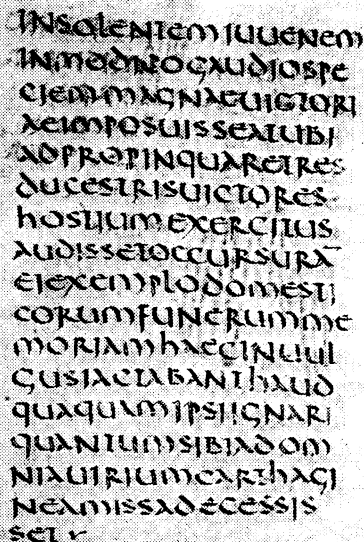 INSOLENTEMIUUENEM
INMODICOGAUDIOSPE
CIEMMAGNAEUICTORI
AEIMPOSUISSEATUBI
ADPROPINQUARETRES
DUCESTRISUICTORES
HOSTIUMEXERCITUS
AUDISSETOCCURSURA
EIEXEMPLODOMESTI
CORUMFUNERUMME
MORIAMHAECINUUL
GUSIACTABANTHAUD
QUAQUAMIPSIIGNARI
QUANTUMSIBIADOM
NIAUIRIUMCARTHAGI
NEAMISSADECESSIS
SET